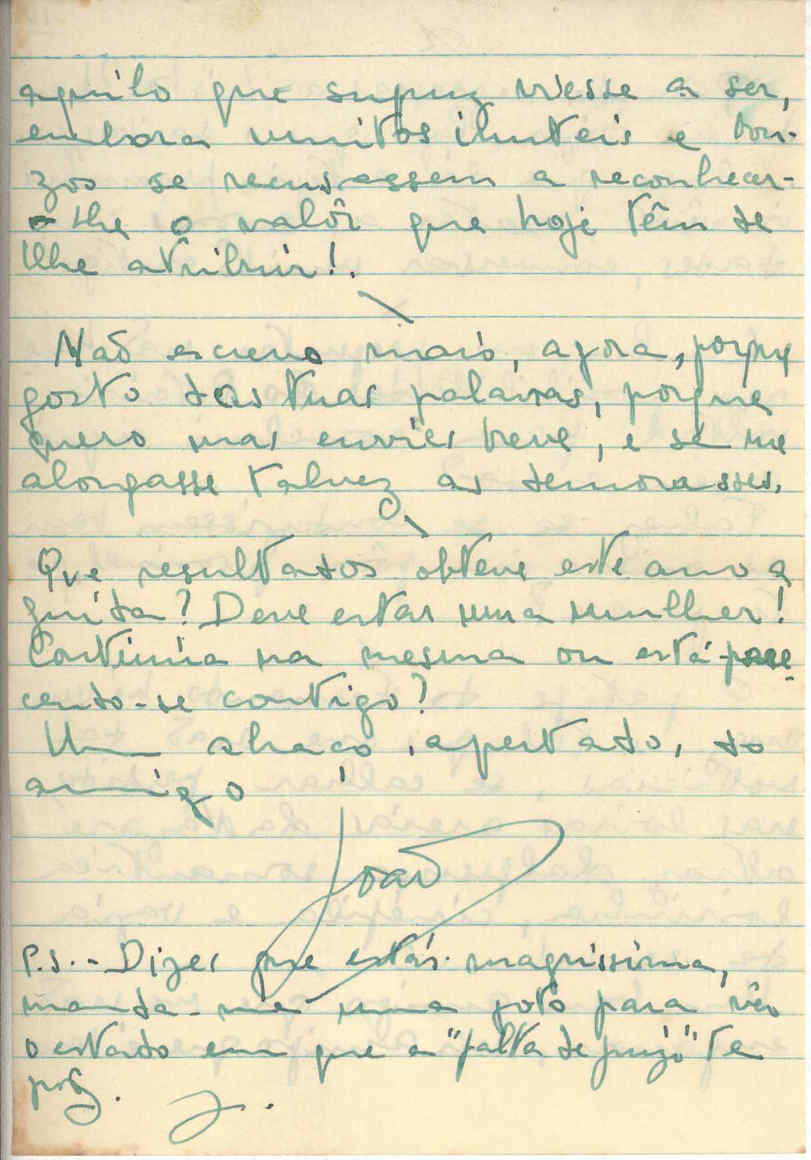 aquilo que supuz viesse a ser,
embora muitos inuteis e bon-
zos se recusassem a reconhecer-
-lhe o valôr que hoje têm de
lhe atribuir!.
Não escrevo mais, agora, porque
gosto das tuas palavras, porque
quero mas envies breve, e se me
alongasse talvez as demorasses.
Que resultados obteve este ano a
guida? Deve estar uma mulher!
Continúa na mesma ou está-pare-
cendo-se contigo?
Um abraço, apertado, do
amigo
João
P.S.-- Dizes que estás magrissima,
manda-me uma foto para vêr
o estado em que a "falta de juizo" te
poz.
J.